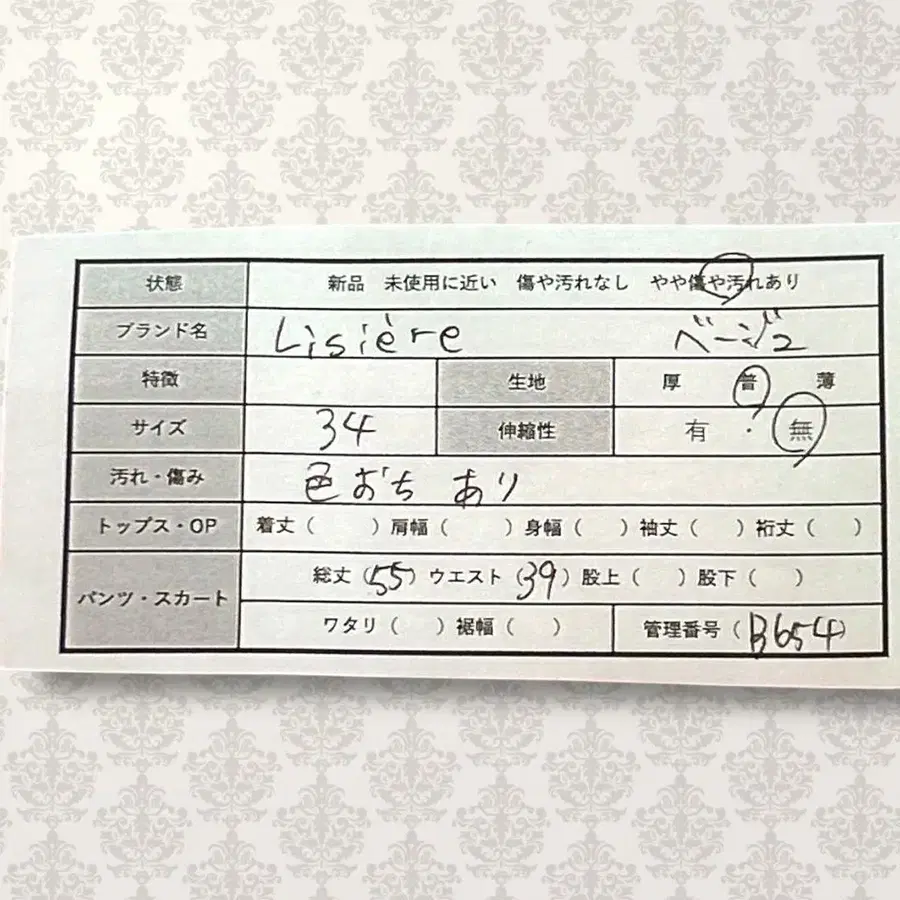 状態 新品 未使用に近い 傷や汚れなし やや傷や汚れあり
ブランド名 Lisière ベージュ
特徴 生地 厚 普 薄
サイズ 34 伸縮性 有 ・ 無
汚れ・傷み 色おち あり
トップス・OP 着丈( ) 肩幅( ) 身幅( ) 袖丈( ) 裄丈( )
パンツ・スカート 総丈(55) ウエスト(39) 股上( ) 股下( )
ワタリ( ) 裾幅( ) 管理番号(B654)